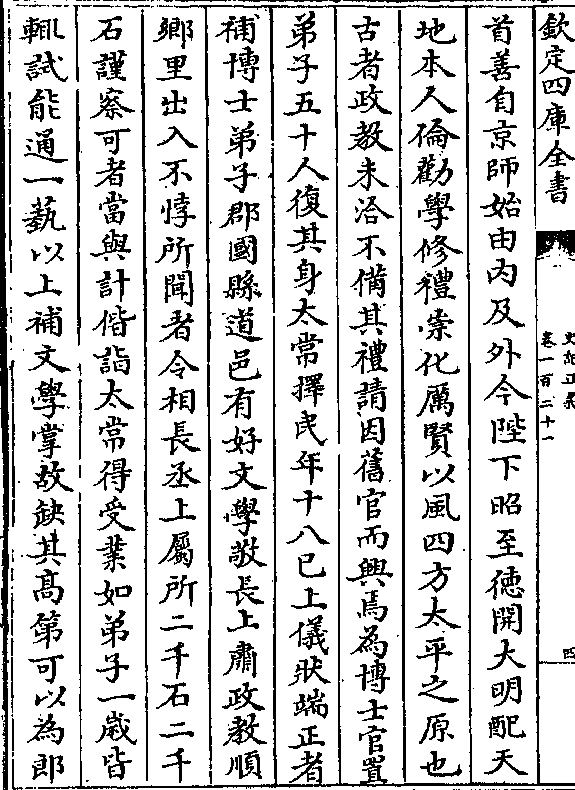 欽定四庫全書
史記正義
卷一百二十一
四
首善自京師始由内及外今陛下昭至徳開大明配天
地本人倫勸學修禮崇化厲賢以風四方太平之原也
古者政教未洽不備其禮請因舊官而興焉為博士官置
弟子五十人復其身太常擇民年十八已上儀狀端正者
補博士弟子郡國縣道邑有好文學敬長上肅政教順
鄉里出入不悖所聞者令相長丞上屬所二千石二千
石謹察可者當與計偕詣太常得受業如弟子一歲皆
輒試能通一藝以上補文學掌故缺其髙第可以為郎